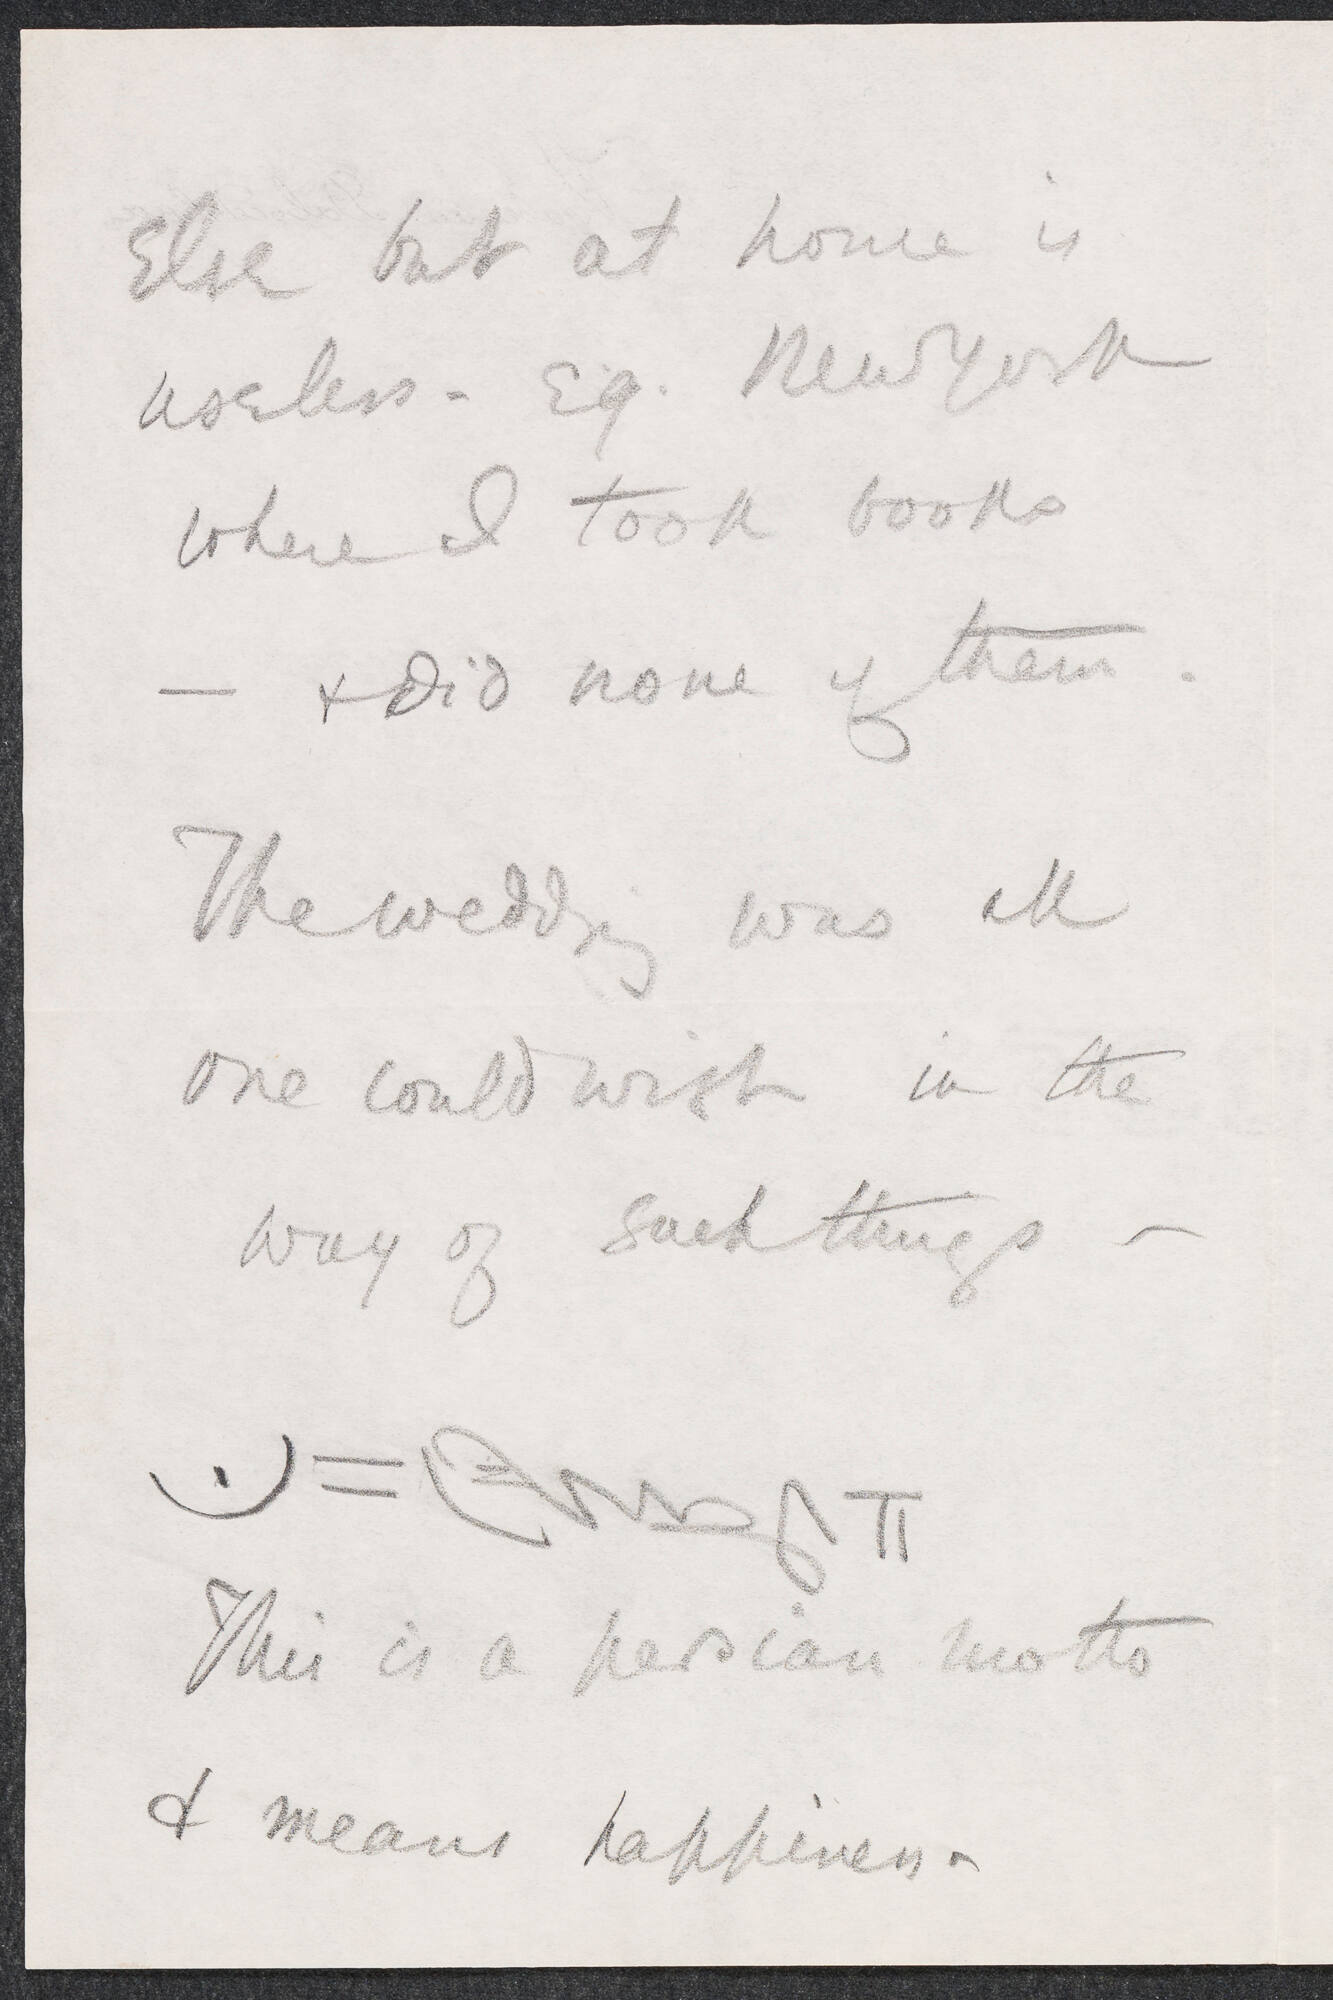 Else but at home is
useless - Eg. New York
where I took books
— & did none of them.
The wedding was all
one could wish in the
way of such things —
This is a persian motto
& means happiness -